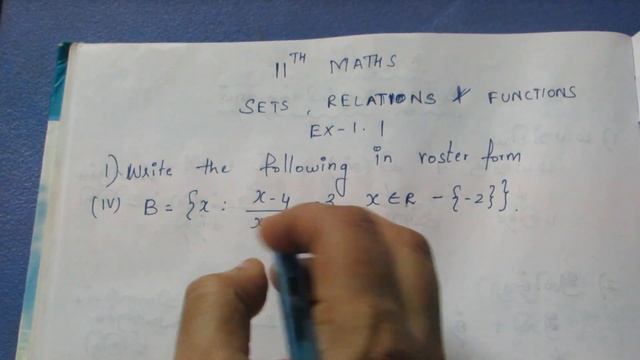 11TH MATHS
SETS, RELATIONS & FUNCTIONS
EX-1.1
1) Write the following in roster form
(IV) B = {x : x-4 3 x ∈ R - {-2}}.
x